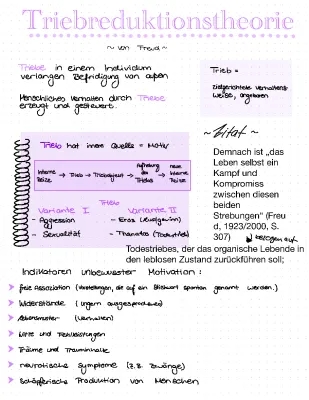 Triebreduktionstheorie
~ von Freud ~
Triebe in einem Individuum
verlangen Befridigung von außen
Menschliches Verhalten durch Triebe
erzeugt und gesteuert.
Trieb =
zielgerichtete Verhaltens-
weise, angeboren
Trieb hat innere Quelle = Motiv
Interne Reize → Trieb → Triebobjekt → Aufhebung des Triebes → neue Interne Reize
Trieb
Variante I
- Aggression
- Sexualität
Variante II
- Eros
- Thanatos (Todestrieb)
~ Zitat ~
Demnach ist „das
Leben selbst ein
Kampf und
Kompromiss
zwischen diesen
beiden
Strebungen“ (Freu
d, 1923/2000, S.
307)
bezogen auf
Todestriebes, der das organische Lebende in
den leblosen Zustand zurückführen soll;
Indikatoren unbewusster Motivation:
freie Assoziation (Vorstellungen, die auf ein Stichwort spontan genannt werden.)
Widerstände (ungern ausgesprochenes)
(Verhalten)
Witze und Fehlleistungen
Träume und Trauminhalte
neurotische Symptome (z.B. Zwänge)
Schöpferische Produktion von Menschen